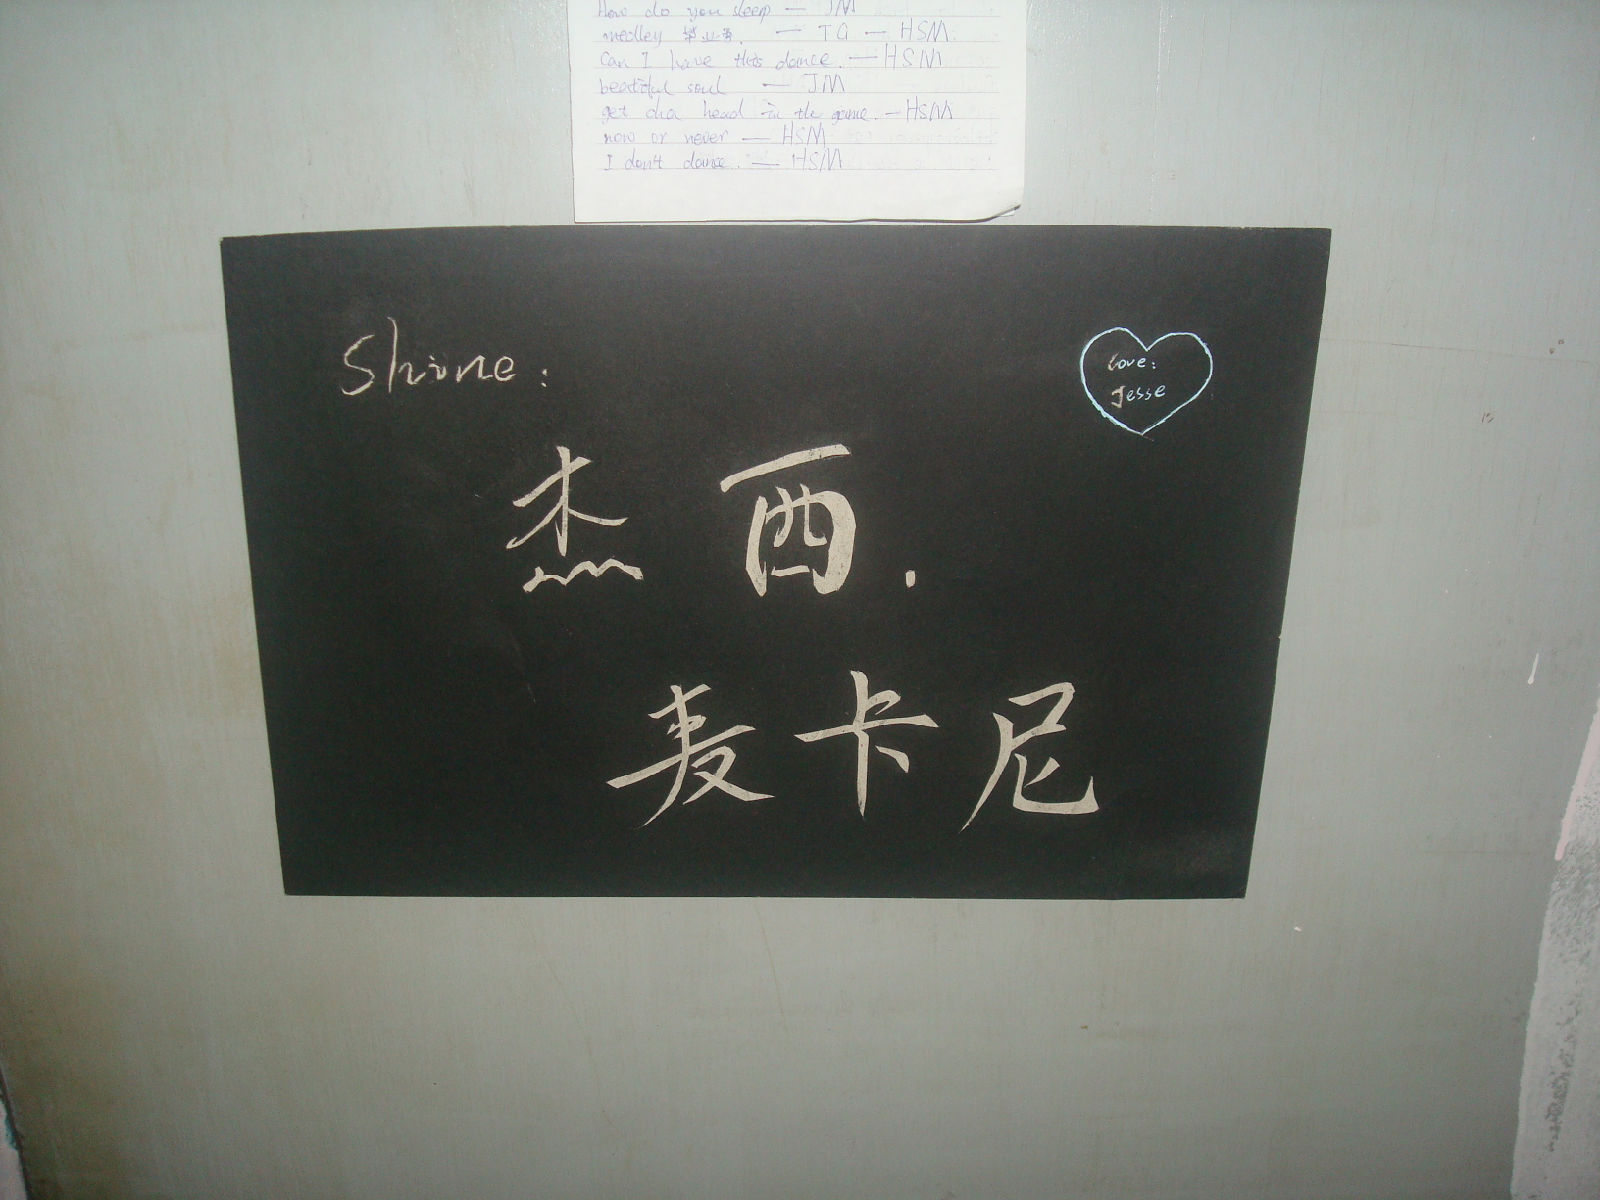 How do you sleep — JM
medley 毕业季. — TG — HSM.
Can I have this dance. — HSM
beatiful soul — JM
get cha head in the game. — HSM
now or never — HSM
I don't dance. — HSM
Shine:
Love:
Jesse
杰西.
麦卡尼